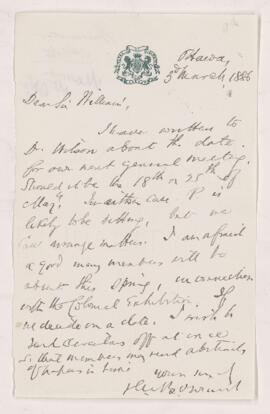 Ottawa,
3d March, 1886
Dear Sir William,
I have written to
Dr Wilson about the date
for our next General Meeting.
Should it be the 18th or 25th of
May? In either case P is
likely to be sitting, but we
can arrange matters. I am afraid
a good many members will be
about this Spring, in connection
with the Colonial Exhibition. If
we decide on a date. I wish to
send circulars off at once
so that members may send abstracts
of papers in time
Yours very